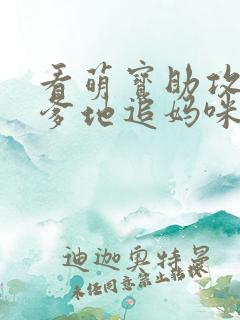 看萌宝助攻
爹地追妈咪
迪迦奥特曼
未经同意禁止转载